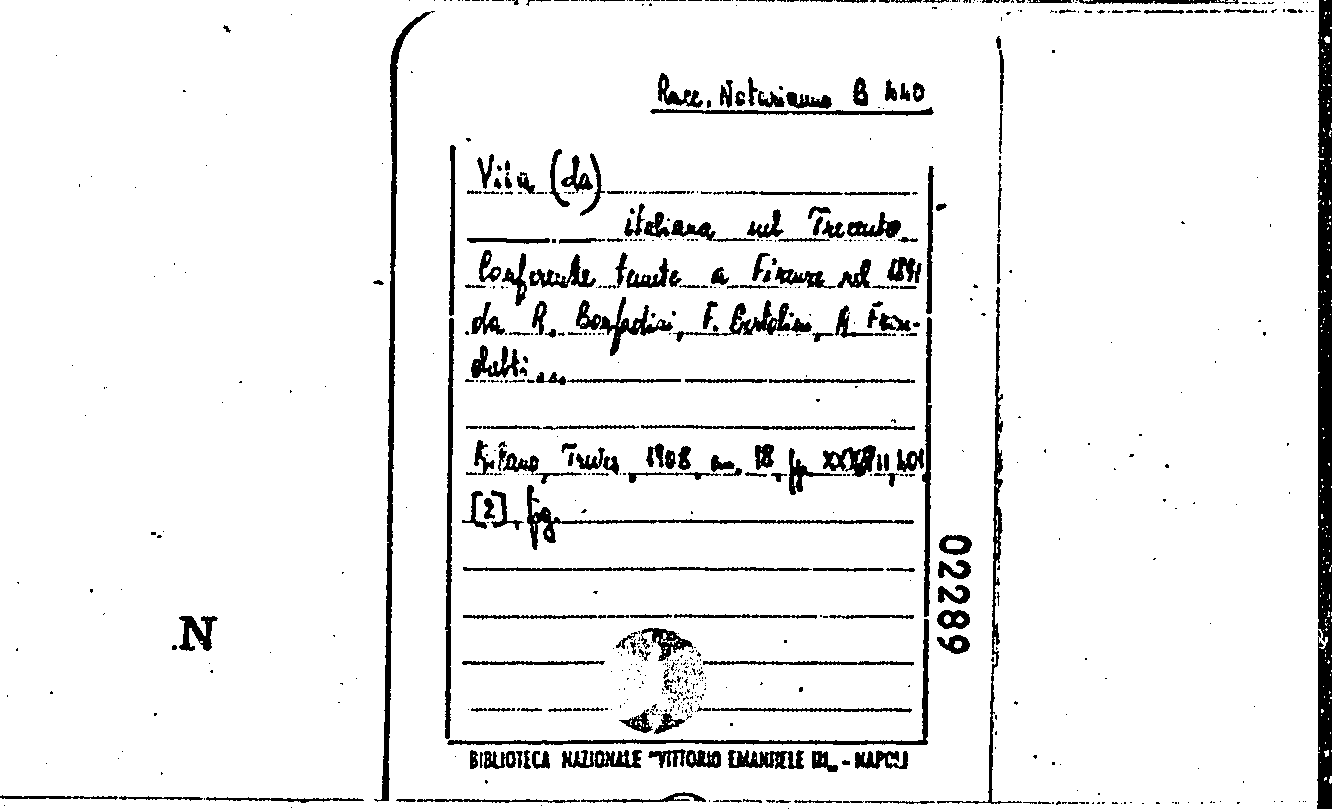 Racc. Notarianno B 440
Vita (La)
italiana nel Trecento.
Conferenze tenute a Firenze nel 1891
da R. Bonfadini, F. Bertolini, A. Fran-
chetti...
Milano, Treves, 1908, in. 18, pp. XXXVII, 401,
[2], fig.
02289
.N
BIBLIOTECA NAZIONALE "VITTORIO EMANUELE III„ - NAPOLI